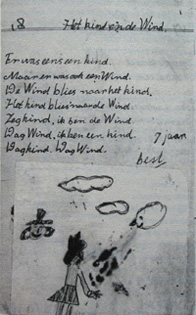 18 Het kind en de Wind.
Er was eens een kind.
Maar er was ook een Wind.
De Wind blies naar het kind.
Het kind blies naar de Wind.
Zeg kind, ik ben de Wind.
Dag Wind, ik ben een kind. 7 jaar
Dag kind. Dag Wind.
best